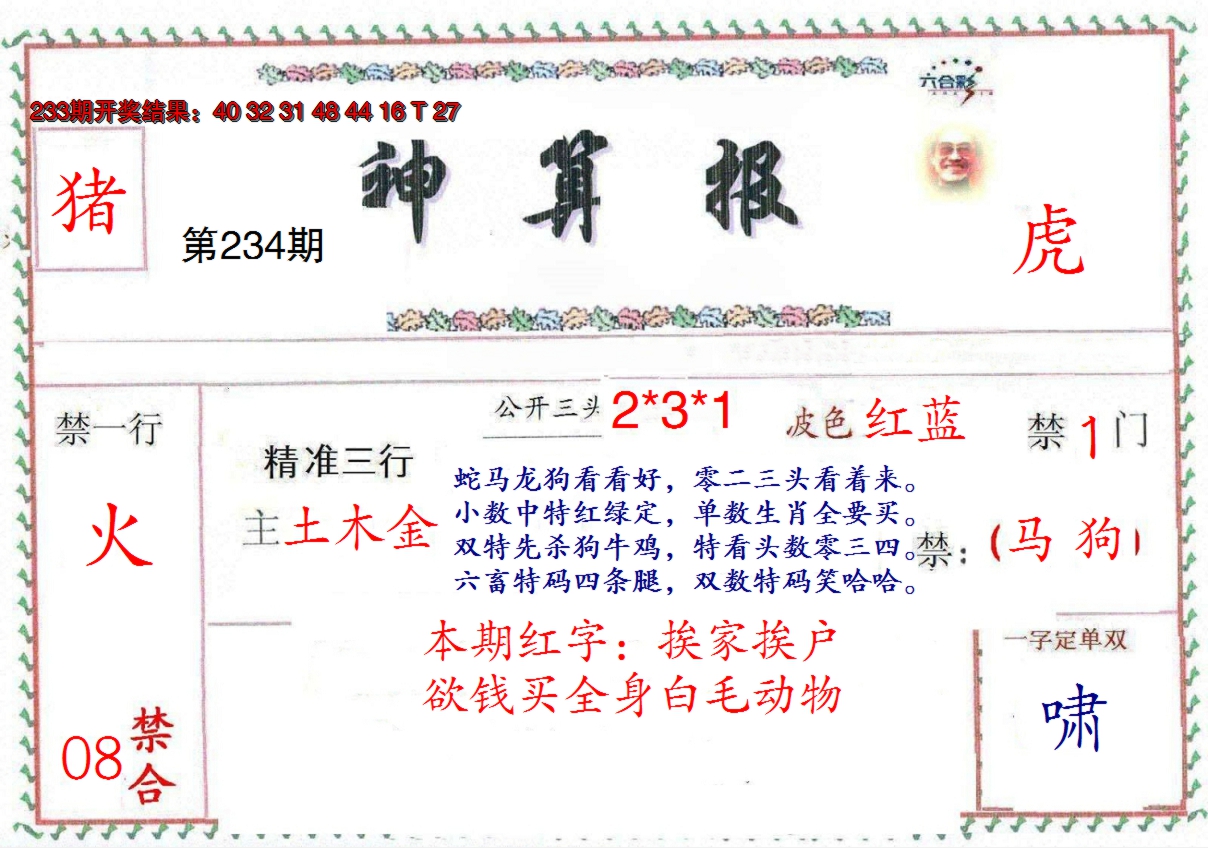 六合彩
233期开奖结果：40 32 31 48 44 16 T 27
神算报
猪
第234期
虎
禁一行
火
08
禁合
精准三行
主土木金
公开三头 2*3*1
波色 红蓝
禁1门
蛇马龙狗看看好，零二三头看着来。
小数中特红绿定，单数生肖全要买。
双特先杀狗牛鸡，特看头数零三四。
六畜特码四条腿，双数特码笑哈哈。
禁：（马 狗）
本期红字：挨家挨户
欲钱买全身白毛动物
一字定单双
啸